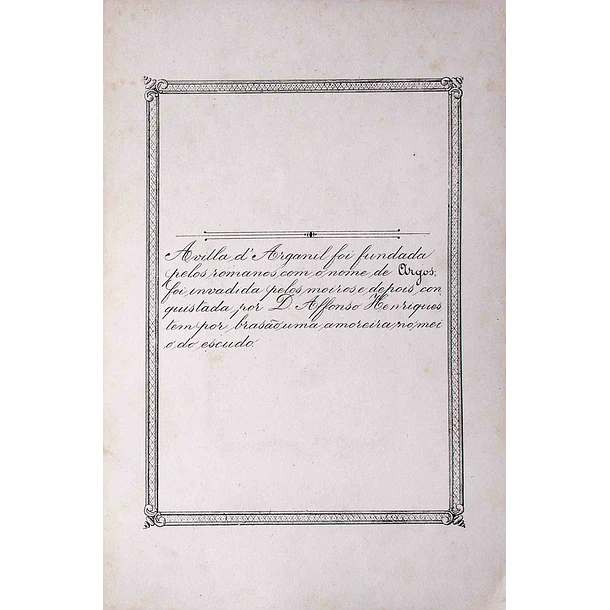 A villa d'Arganil foi fundada
pelos romanos, com o nome de Argos;
foi invadida pelos moiros e depois, con
quistada por D. Affonso Henriques
tem por brasão, uma amoreira no mei
o do escudo.